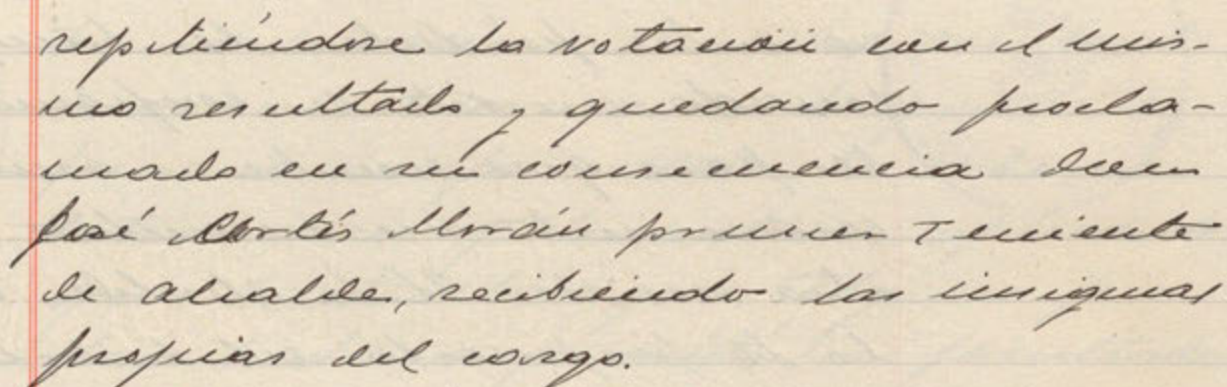 repitiéndose la votación con el mis-
mo resultado y quedando procla-
mado en su consecuencia don
José Cortés Morán primer Teniente
de alcalde, recibiendo las insignias
propias del cargo.